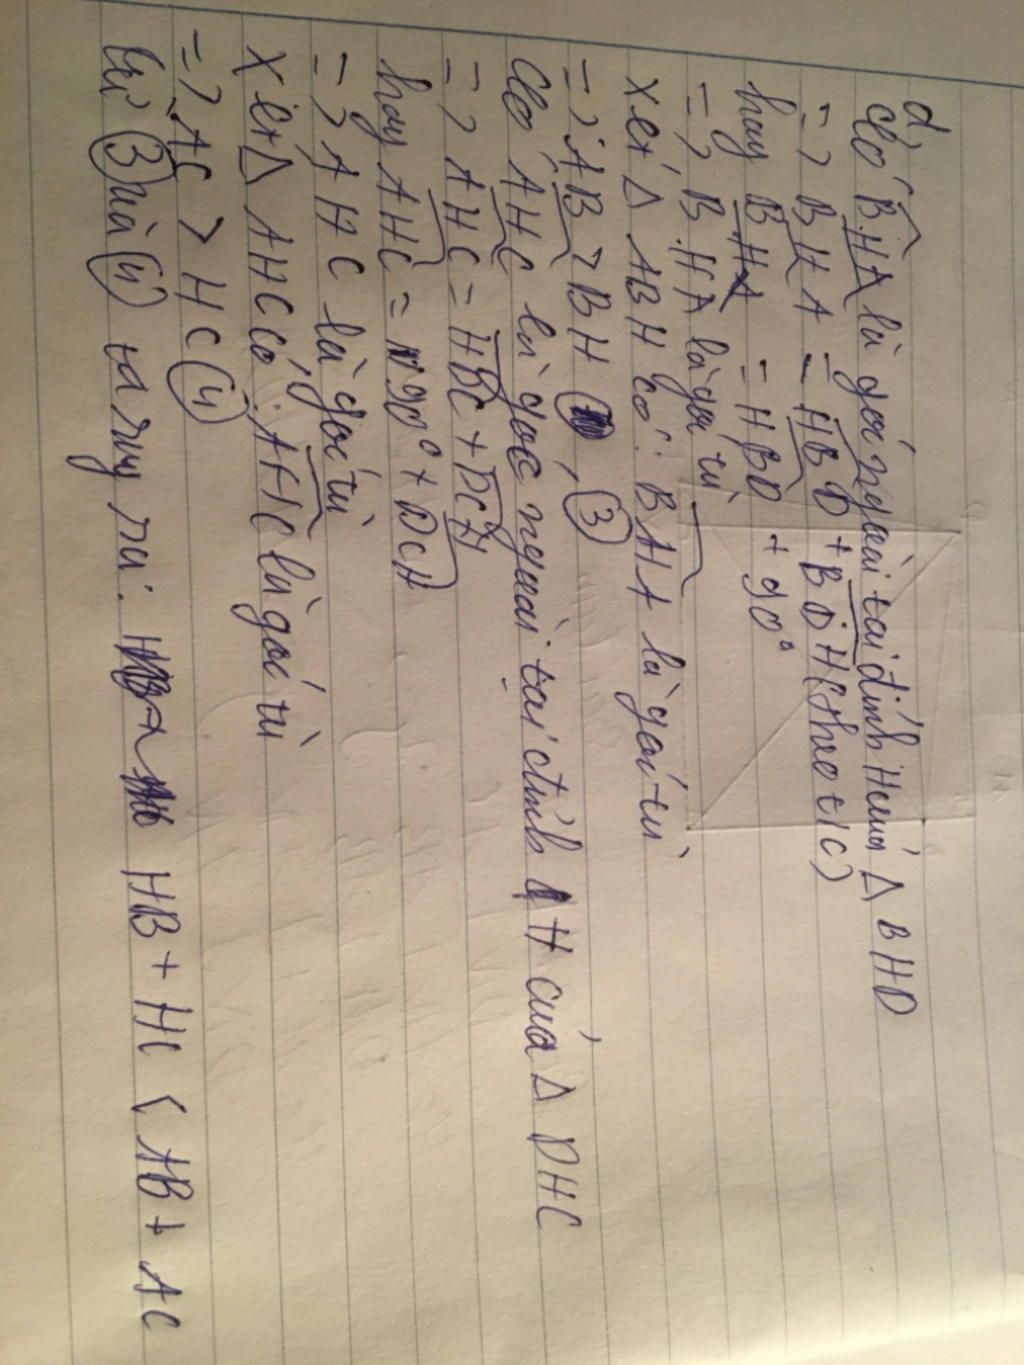 d,
Có BHA là góc ngoài tại đỉnh H của Δ BHD
=> BHA = HBD + BDH (theo t/c)
hay BHA = HBD + 90°
=> BHA là góc tù
Xét Δ ABH có: BHA là góc tù
=> AB > BH (3)
Có AHC là góc ngoài tại đỉnh H của Δ DHC
=> AHC = HDC + DCH
hay AHC = 90° + DCH
=> AHC là góc tù
Xét Δ AHC Có: AHC là góc tù
=> AC > HC (4)
Từ (3) và (4) ta suy ra: HB + HC < AB + AC